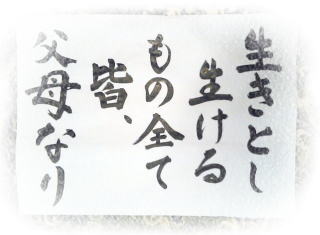 生きとし
生ける
もの全て
皆、
父母なり